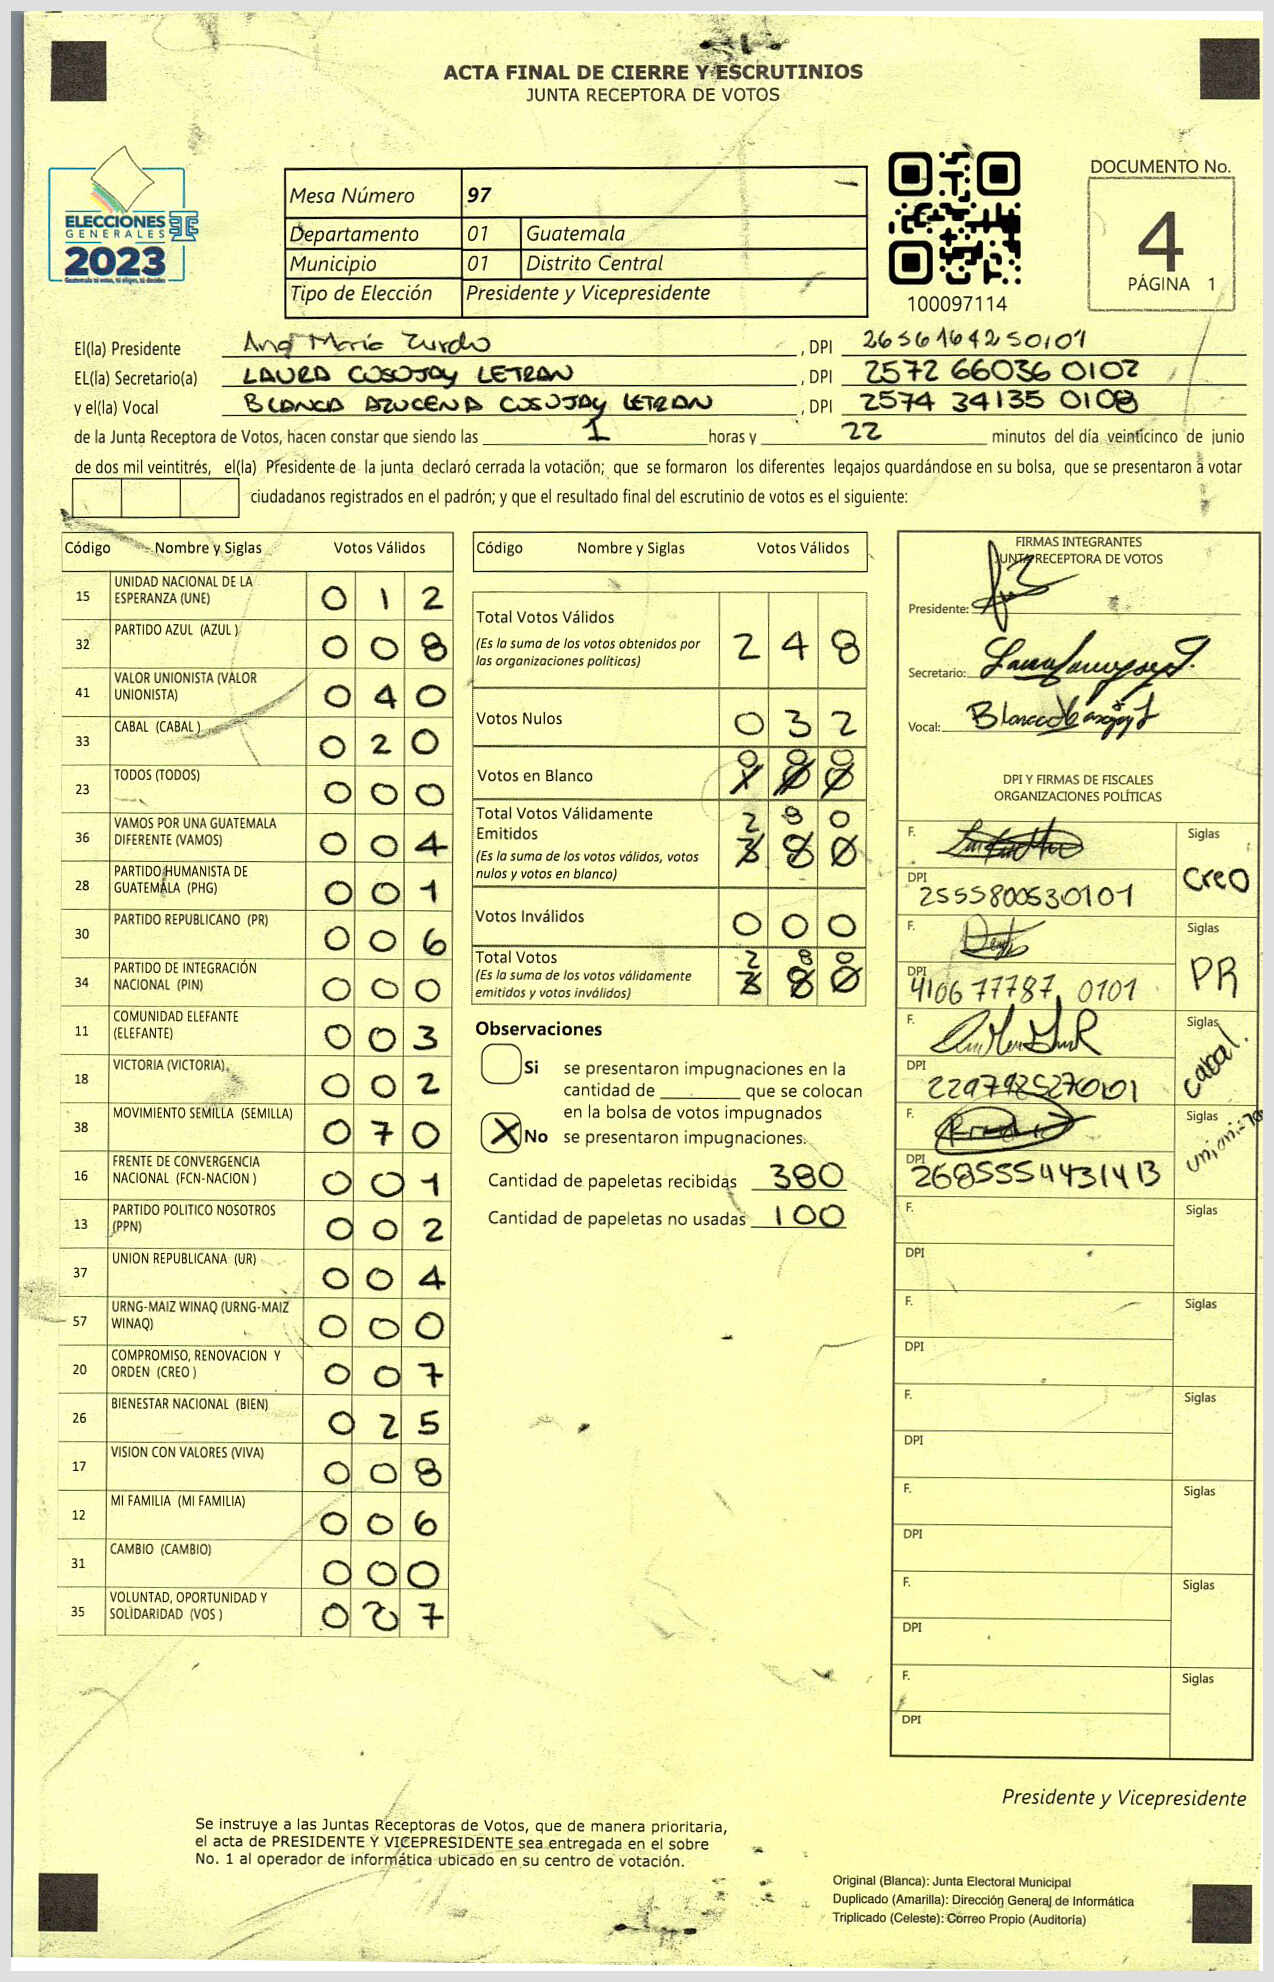 ACTA FINAL DE CIERRE Y ESCRUTINIOS
JUNTA RECEPTORA DE VOTOS
ELECCIONES
GENERALES
2023
Guatemala tú votas, tú eliges, tú decides
Mesa Número 97
Departamento 01 Guatemala
Municipio 01 Distrito Central
Tipo de Elección Presidente y Vicepresidente
100097114
DOCUMENTO No.
4
PÁGINA 1
El(la) Presidente Ana María Zurdo, DPI 2656164250101
EL(la) Secretario(a) LAURA COSOJAY LETRAN, DPI 2572 66036 0102
y el(la) Vocal BLANCA AZUCENA COSOJAY LETRAN, DPI 2574 34135 0108
de la Junta Receptora de Votos, hacen constar que siendo las 1 horas y 22 minutos del día veinticinco de junio
de dos mil veintitrés, el(la) Presidente de la junta declaró cerrada la votación; que se formaron los diferentes legajos quardándose en su bolsa, que se presentaron a votar
ciudadanos registrados en el padrón; y que el resultado final del escrutinio de votos es el siguiente:
Código Nombre y Siglas Votos Válidos
15 UNIDAD NACIONAL DE LA ESPERANZA (UNE) 0 1 2
32 PARTIDO AZUL (AZUL ) 0 0 8
41 VALOR UNIONISTA (VALOR UNIONISTA) 0 4 0
33 CABAL (CABAL ) 0 2 0
23 TODOS (TODOS) 0 0 0
36 VAMOS POR UNA GUATEMALA DIFERENTE (VAMOS) 0 0 4
28 PARTIDO HUMANISTA DE GUATEMALA (PHG) 0 0 1
30 PARTIDO REPUBLICANO (PR) 0 0 6
34 PARTIDO DE INTEGRACIÓN NACIONAL (PIN) 0 0 0
11 COMUNIDAD ELEFANTE (ELEFANTE) 0 0 3
18 VICTORIA (VICTORIA) 0 0 2
38 MOVIMIENTO SEMILLA (SEMILLA) 0 7 0
16 FRENTE DE CONVERGENCIA NACIONAL (FCN-NACION ) 0 0 1
13 PARTIDO POLITICO NOSOTROS (PPN) 0 0 2
37 UNION REPUBLICANA (UR) 0 0 4
57 URNG-MAIZ WINAQ (URNG-MAIZ WINAQ) 0 0 0
20 COMPROMISO, RENOVACION Y ORDEN (CREO ) 0 0 7
26 BIENESTAR NACIONAL (BIEN) 0 2 5
17 VISION CON VALORES (VIVA) 0 0 8
12 MI FAMILIA (MI FAMILIA) 0 0 6
31 CAMBIO (CAMBIO) 0 0 0
35 VOLUNTAD, OPORTUNIDAD Y SOLIDARIDAD (VOS ) 0 2 7
Código Nombre y Siglas Votos Válidos
Total Votos Válidos 2 4 8
(Es la suma de los votos obtenidos por
las organizaciones políticas)
Votos Nulos 0 3 2
Votos en Blanco 0 0 0
Total Votos Válidamente
Emitidos 2 8 0
(Es la suma de los votos válidos, votos
nulos y votos en blanco)
Votos Inválidos 0 0 0
Total Votos 2 8 0
(Es la suma de los votos válidamente
emitidos y votos inválidos)
Observaciones
Si se presentaron impugnaciones en la
cantidad de ________ que se colocan
en la bolsa de votos impugnados
X No se presentaron impugnaciones.
Cantidad de papeletas recibidas 380
Cantidad de papeletas no usadas 100
FIRMAS INTEGRANTES
JUNTA RECEPTORA DE VOTOS
Presidente:
Secretario:
Vocal:
DPI Y FIRMAS DE FISCALES
ORGANIZACIONES POLÍTICAS
F. Siglas
DPI 2555800530101 Creo
F. Siglas
DPI 4106 77787 0101 PR
F. Siglas
DPI 2297925270101 Cabal.
F. Siglas
DPI 2685554431413
F. Siglas
DPI
F. Siglas
DPI
F. Siglas
DPI
F. Siglas
DPI
F. Siglas
DPI
F. Siglas
DPI
Presidente y Vicepresidente
Se instruye a las Juntas Receptoras de Votos, que de manera prioritaria,
el acta de PRESIDENTE Y VICEPRESIDENTE sea entregada en el sobre
No. 1 al operador de informática ubicado en su centro de votación.
Original (Blanca): Junta Electoral Municipal
Duplicado (Amarilla): Dirección General de Informática
Triplicado (Celeste): Correo Propio (Auditoría)